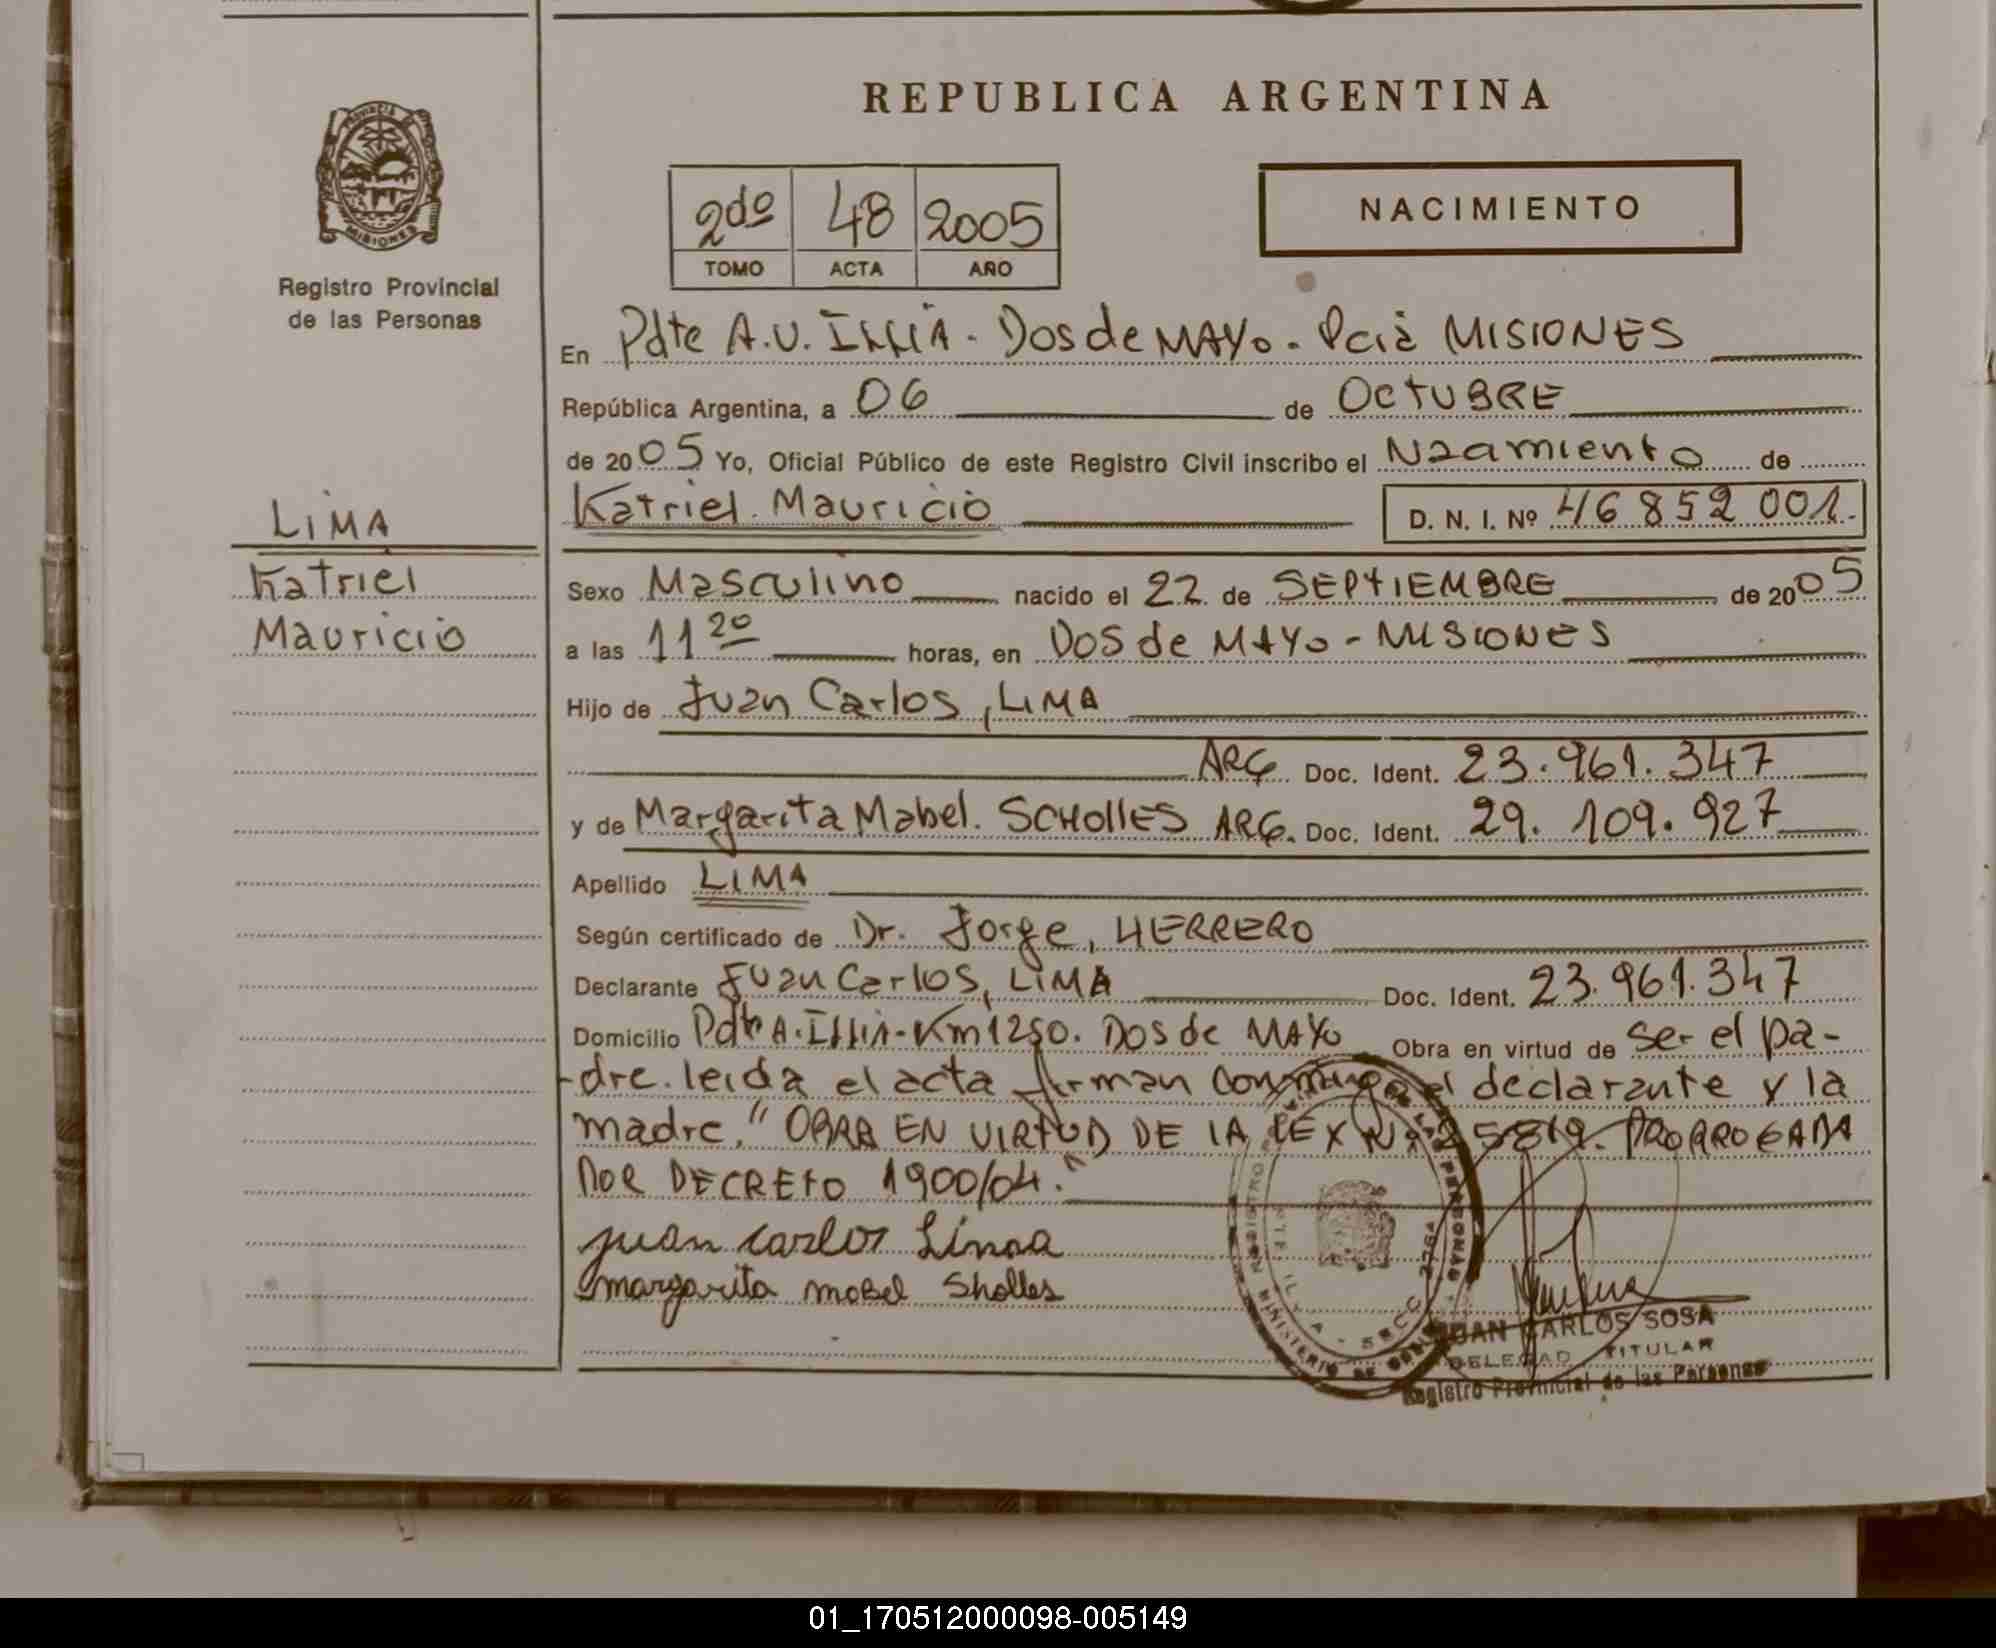 REPUBLICA ARGENTINA
PROVINCIA DE
MISIONES
Registro Provincial
de las Personas
2do 48 2005
TOMO ACTA AÑO
NACIMIENTO
En Pdte A.U. ILLIA - Dos de MAYO - Pcia MISIONES
República Argentina, a 06 de OCTUBRE
de 2005 Yo, Oficial Público de este Registro Civil inscribo el Nacimiento de
Katriel Mauricio D. N. I. Nº 46 852 001.
LIMA
Katriel
Mauricio
Sexo Masculino nacido el 22 de SEPTIEMBRE de 2005
a las 11 20 horas, en Dos de MAYO - MISIONES
Hijo de Juan Carlos, LIMA
ARG Doc. Ident. 23.961.347
y de Margarita Mabel. SCHOLLES ARG. Doc. Ident. 29.109.927
Apellido LIMA
Según certificado de Dr. Jorge, HERRERO
Declarante Juan Carlos, LIMA Doc. Ident. 23.961.347
Domicilio Pdte A. Illia - Km 1250. Dos de MAYO Obra en virtud de ser el pa-
-dre. leida el acta firman conmigo el declarante y la
madre. "OBRA EN VIRTUD DE LA LEY Nº 25819. PRORROGADA
POR DECRETO 1900/04."
juan carlos Lima
margarita mabel Sholles
JUAN CARLOS SOSA
DELEGAD TITULAR
Registro Provincial de las Personas
01_170512000098-005149